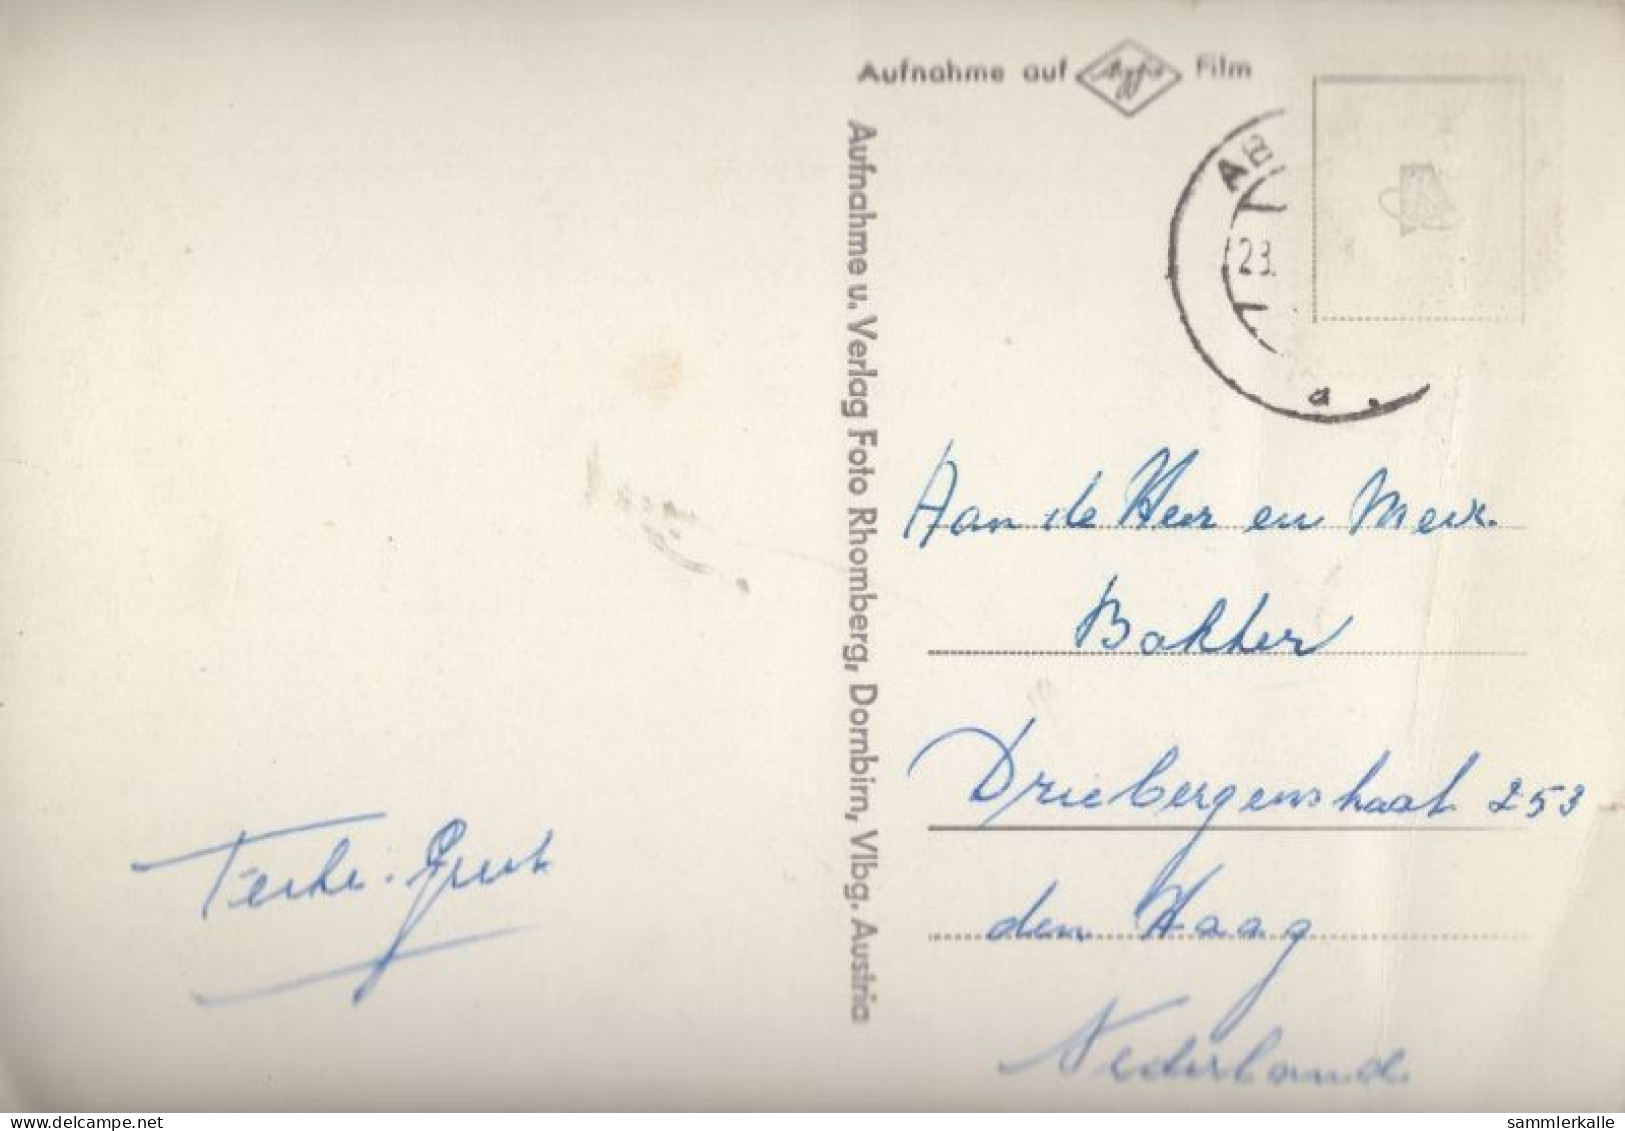 Aufnahme auf Agfa Film
Aufnahme u. Verlag Foto Rhomberg, Dornbirn, Vlbg. Austria
AB
23.
a
Aan de Heer en Mevr.
Bakker
Driebergenstraat 253
den Haag
Nederland
www.delcampe.net
sammlerkalle